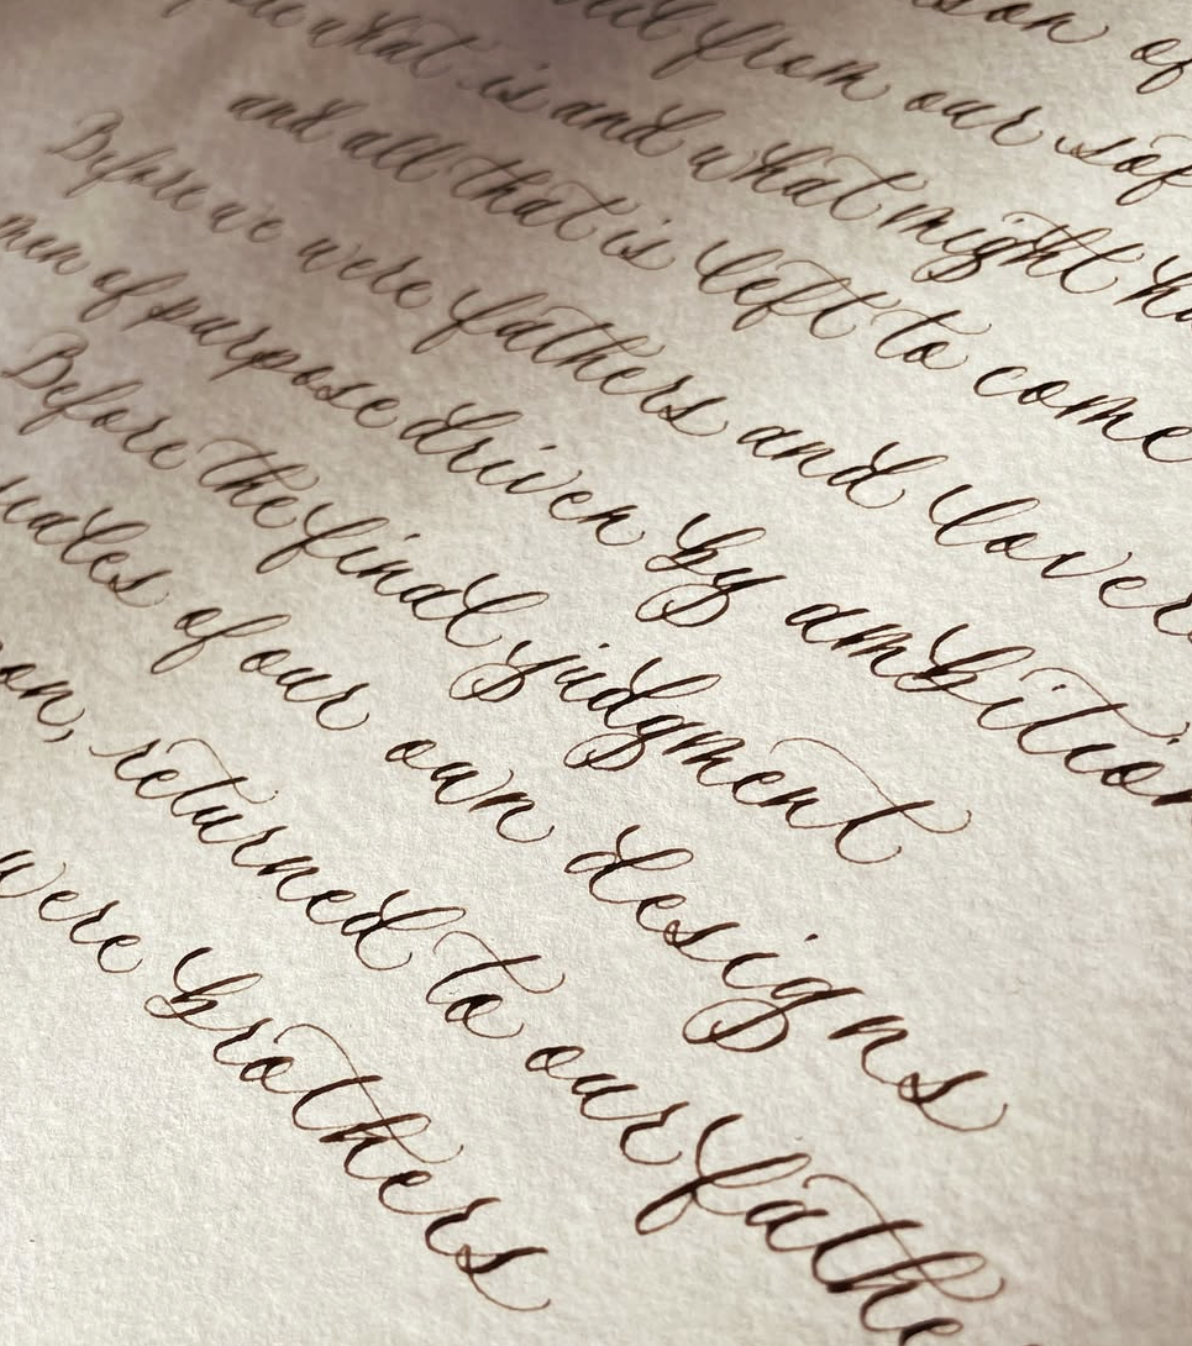 of
from our
what is and what might
and all that is left to come
Before we were fathers and lovers
men of purpose driven by ambition
Before the final judgment
of our own designs
returned to our fathe
were brothers